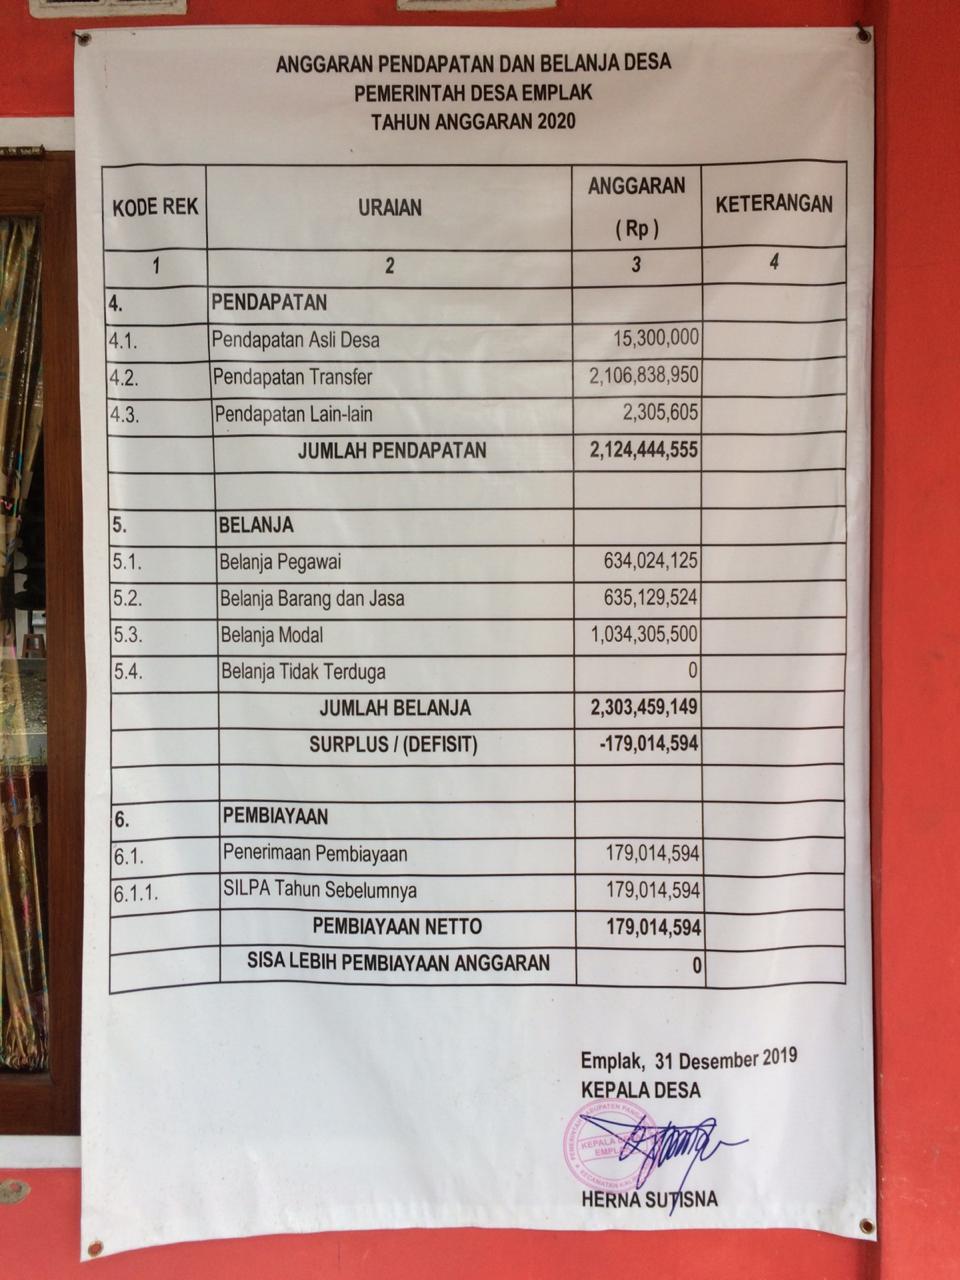 ANGGARAN PENDAPATAN DAN BELANJA DESA
PEMERINTAH DESA EMPLAK
TAHUN ANGGARAN 2020
KODE REK URAIAN ANGGARAN ( Rp ) KETERANGAN
1 2 3 4
4. PENDAPATAN
4.1. Pendapatan Asli Desa 15,300,000
4.2. Pendapatan Transfer 2,106,838,950
4.3. Pendapatan Lain-lain 2,305,605
JUMLAH PENDAPATAN 2,124,444,555
5. BELANJA
5.1. Belanja Pegawai 634,024,125
5.2. Belanja Barang dan Jasa 635,129,524
5.3. Belanja Modal 1,034,305,500
5.4. Belanja Tidak Terduga 0
JUMLAH BELANJA 2,303,459,149
SURPLUS / (DEFISIT) -179,014,594
6. PEMBIAYAAN
6.1. Penerimaan Pembiayaan 179,014,594
6.1.1. SILPA Tahun Sebelumnya 179,014,594
PEMBIAYAAN NETTO 179,014,594
SISA LEBIH PEMBIAYAAN ANGGARAN 0
Emplak, 31 Desember 2019
KEPALA DESA
KEPALA
HERNA SUTISNA